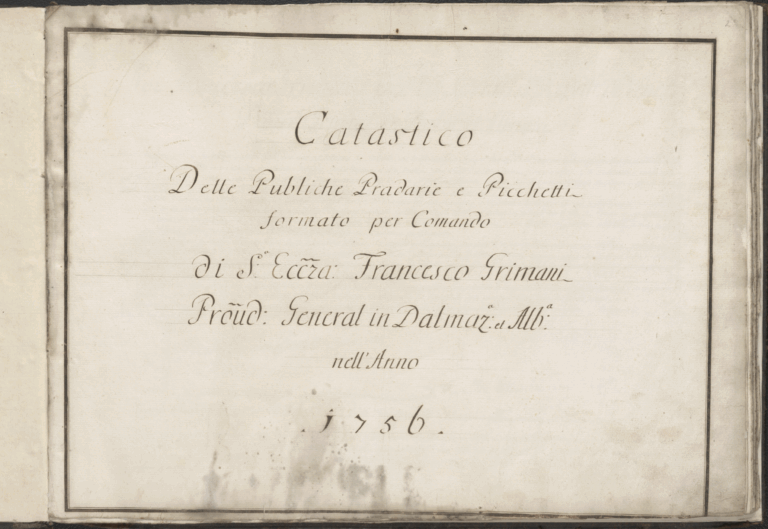 Catastico
Delle Publiche Pradarie e Picchetti
formato per Comando
di S.ª Ecc̃za: Francesco Grimani
Prõũd: General in Dalmaz:ª et Alb:ª
nell'Anno
.1756.